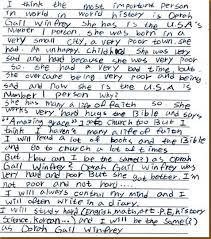 I think the most important person
in world in world history is Oprah
Gail Winfrey She has is the U.S.A's
Number 1 person, she was born in a
very small city, a very poor town she
had An unhappy child She was very
sad and bad because she was very poor
so she had a very bad time but
She overcame being very poor and being
sad and now she is the U.S.A's
Number person why?
She has many a life of faith so she
very hard hugs the Bible and says
"Amazing grace" church too But I
think I haven't many a life of faith
I will read a lot of books and the Bible
and Go to church a lot of times
But How can I be the same(?) as Oprah
Gail Winfrey? Oprah Gail Winfrey was
very hard and poor But She better I'm
not poor and not hard
I will always control my mind and I
will often write in a diary.
I will study hard English, math, art, P.E, history
Science, Korean and I will be the same(?)
as Oprah Gail Winfrey